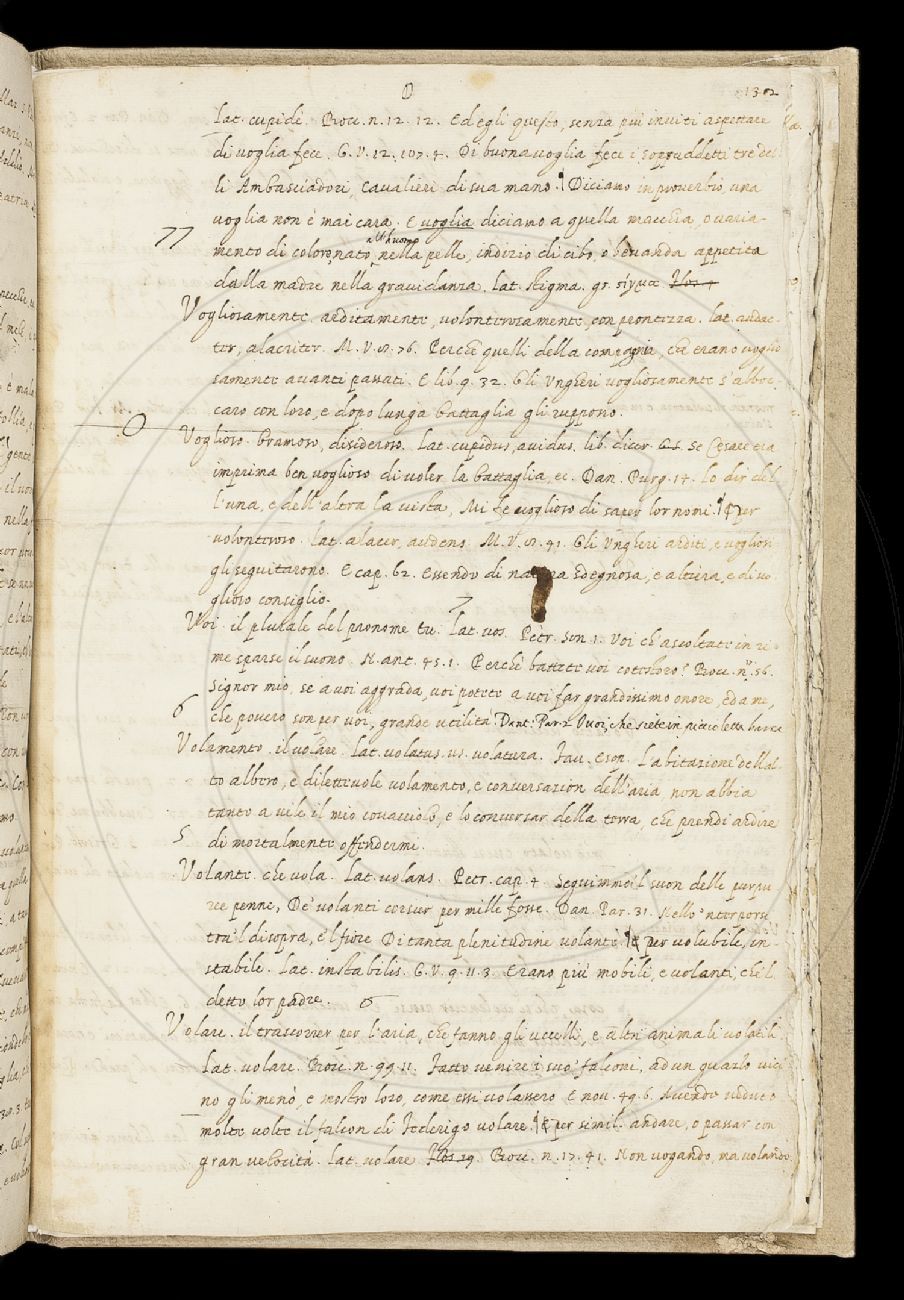 D
1302
lat. cupidè. Bocc. n. 12. 12. Ed egli questo, senza più inviti aspettare
di voglia fece. G. V. 12. 107. 4. Di buona voglia fece i sopraddetti tre det-
li Ambasciadori, Cavalieri di sua mano. Diciamo in proverbio, una
voglia non è mai cara. E voglia diciamo a quella macchia, o varia-
77
mento di colore, nato nella pelle, indizio di cibo, o bevanda appetita
dalla madre nella gravidanza. lat. stigma. gr. στίγμα
Vogliosamente. arditamente, volonterosamente, con prontezza. lat. audac-
ter, alacriter. M. V. 76. Perchè quelli della compagnia, che erano voglio
samente avanti passati. E lib. 9. 32. Gli Ungheri vogliosamente s'abboc-
caro con loro, e dopo lunga battaglia gli ruppono.
Voglioso. bramoso, disideroso. Lat. cupidus, avidus. lib. dicer. Se Cesare era
imprima ben voglioso di voler la battaglia, ec. Dan. Purg. 14. Lo dir dell
l'una, e dell'altra la vista, Mi fe voglioso di saper lor nomi. per
volonteroso. lat. alacer, audens. M. V. 41. Gli Ungheri arditi, e vogliosi
gli seguitarono. E cap. 62. Essendo di natura sdegnosa, e altiera, e di vo
glioso consiglio.
7
Voi. il plurale del pronome tu. Lat. vos. Petr. Son. 1. Voi ch'ascoltate in ri-
me sparse il suono. N. ant. 45. 1. Perchè battete voi costoro? Bocc. n. 56.
Signor mio, se a voi aggrada, voi potete a voi far grandissimo onore, ed a me,
6
che povero son per voi, grande utilità. Dant. Par. 2. O voi, che siete in piccioletta barca
Volamento. il volare. Lat. volatus, us. volatura. Fav. Esop. L'abitazione dell'al-
to albero, e dilettevole volamento, e conversazion dell'aria non abbia
tanto a vile il mio covacciolo, e lo conversar della terra, che prendi ardire
5
di mortalmente offendermi.
Volante. che vola. Lat. volans. Petr. cap. 4. Seguimmo il suon delle purpu
ree penne, De' volanti corsier per mille fosse. Dan. Par. 31. Nello 'nterporsi
tra 'l disopra, e 'l fiore Di tanta plenitudine volante. per volubile, in-
stabile. Lat. instabilis. G. V. 9. 11. 3. Erano più mobili, e volanti, che 'l
detto lor padre.
6
Volare. il trascorrer per l'aria, che fanno gli uccelli, e altri animali volatili.
Lat. volare. Bocc. n. 99. 11. Fatto venire i suo' falconi, ad un guazzo vici-
no gli menò, e mostrò loro, come essi volassero. E nov. 49. 6. Avendo veduto
molte volte il falcon di Federigo volare. per simil. andare, o passar con
gran velocità. Lat. volare. Bocc. n. 17. 41. Non vogando, ma volando